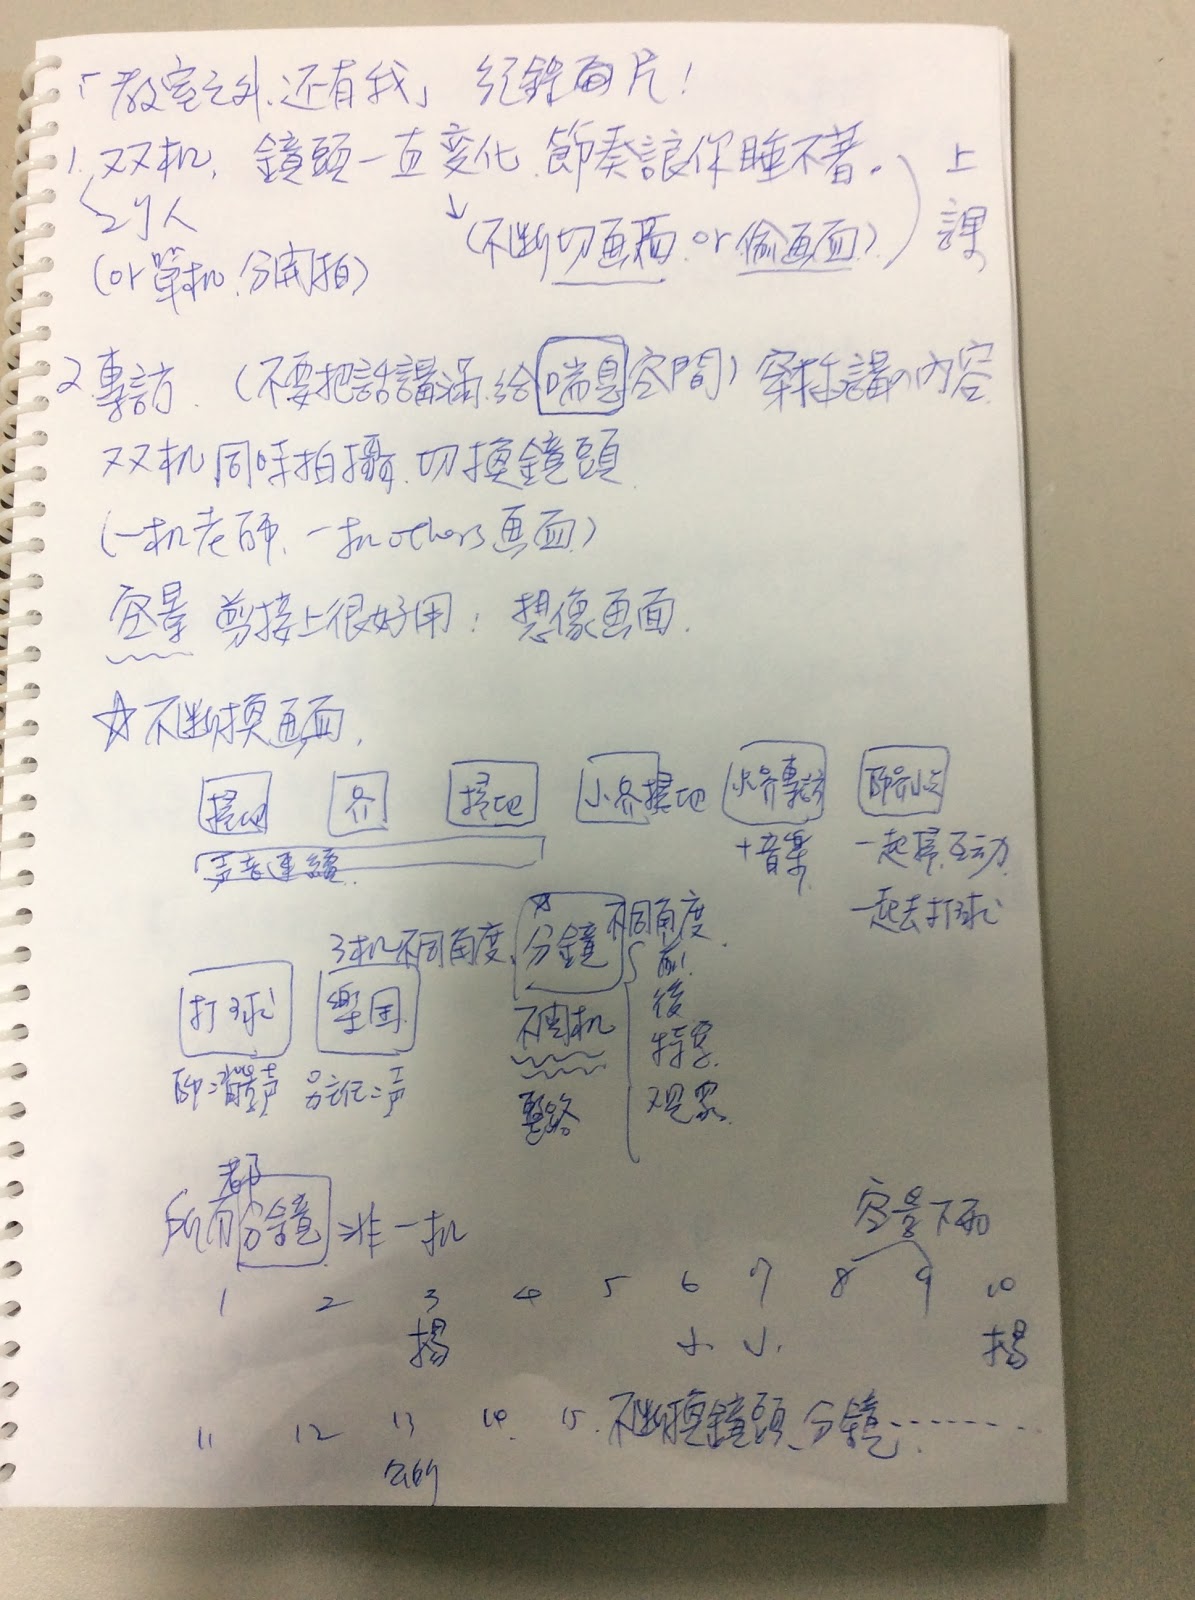 「教室之外、还有我」紀錄片!
1. 双机, 鏡頭一直变化. 節奏讓你睡不著。 上課
2个人 ↓(不断切画面 or 偷画面)
(or 單机. 分開拍)
2. 專訪. (不要把話講滿. 給喘息空間) 穿插講の內容
双机同時拍攝. 切換鏡頭.
(一机老師、一机others画面)
空景 剪接上很好用: 想像画面.
☆不断換画面.
掃地 介 掃地 小介掃地 小介專訪
声音連續 +音樂 一起掃. 互动.
一起去打球
3机不同角度. 分鏡 不同角度.
打球 前.
不関机 後
背景声 特寫.
观眾
都
所有分鏡 非一机
空景下雨
1 2 3 4 5 6 7 8 9 10
楊 小. 小. 楊
11 12 13 14. 15. 不断換鏡頭、分鏡........